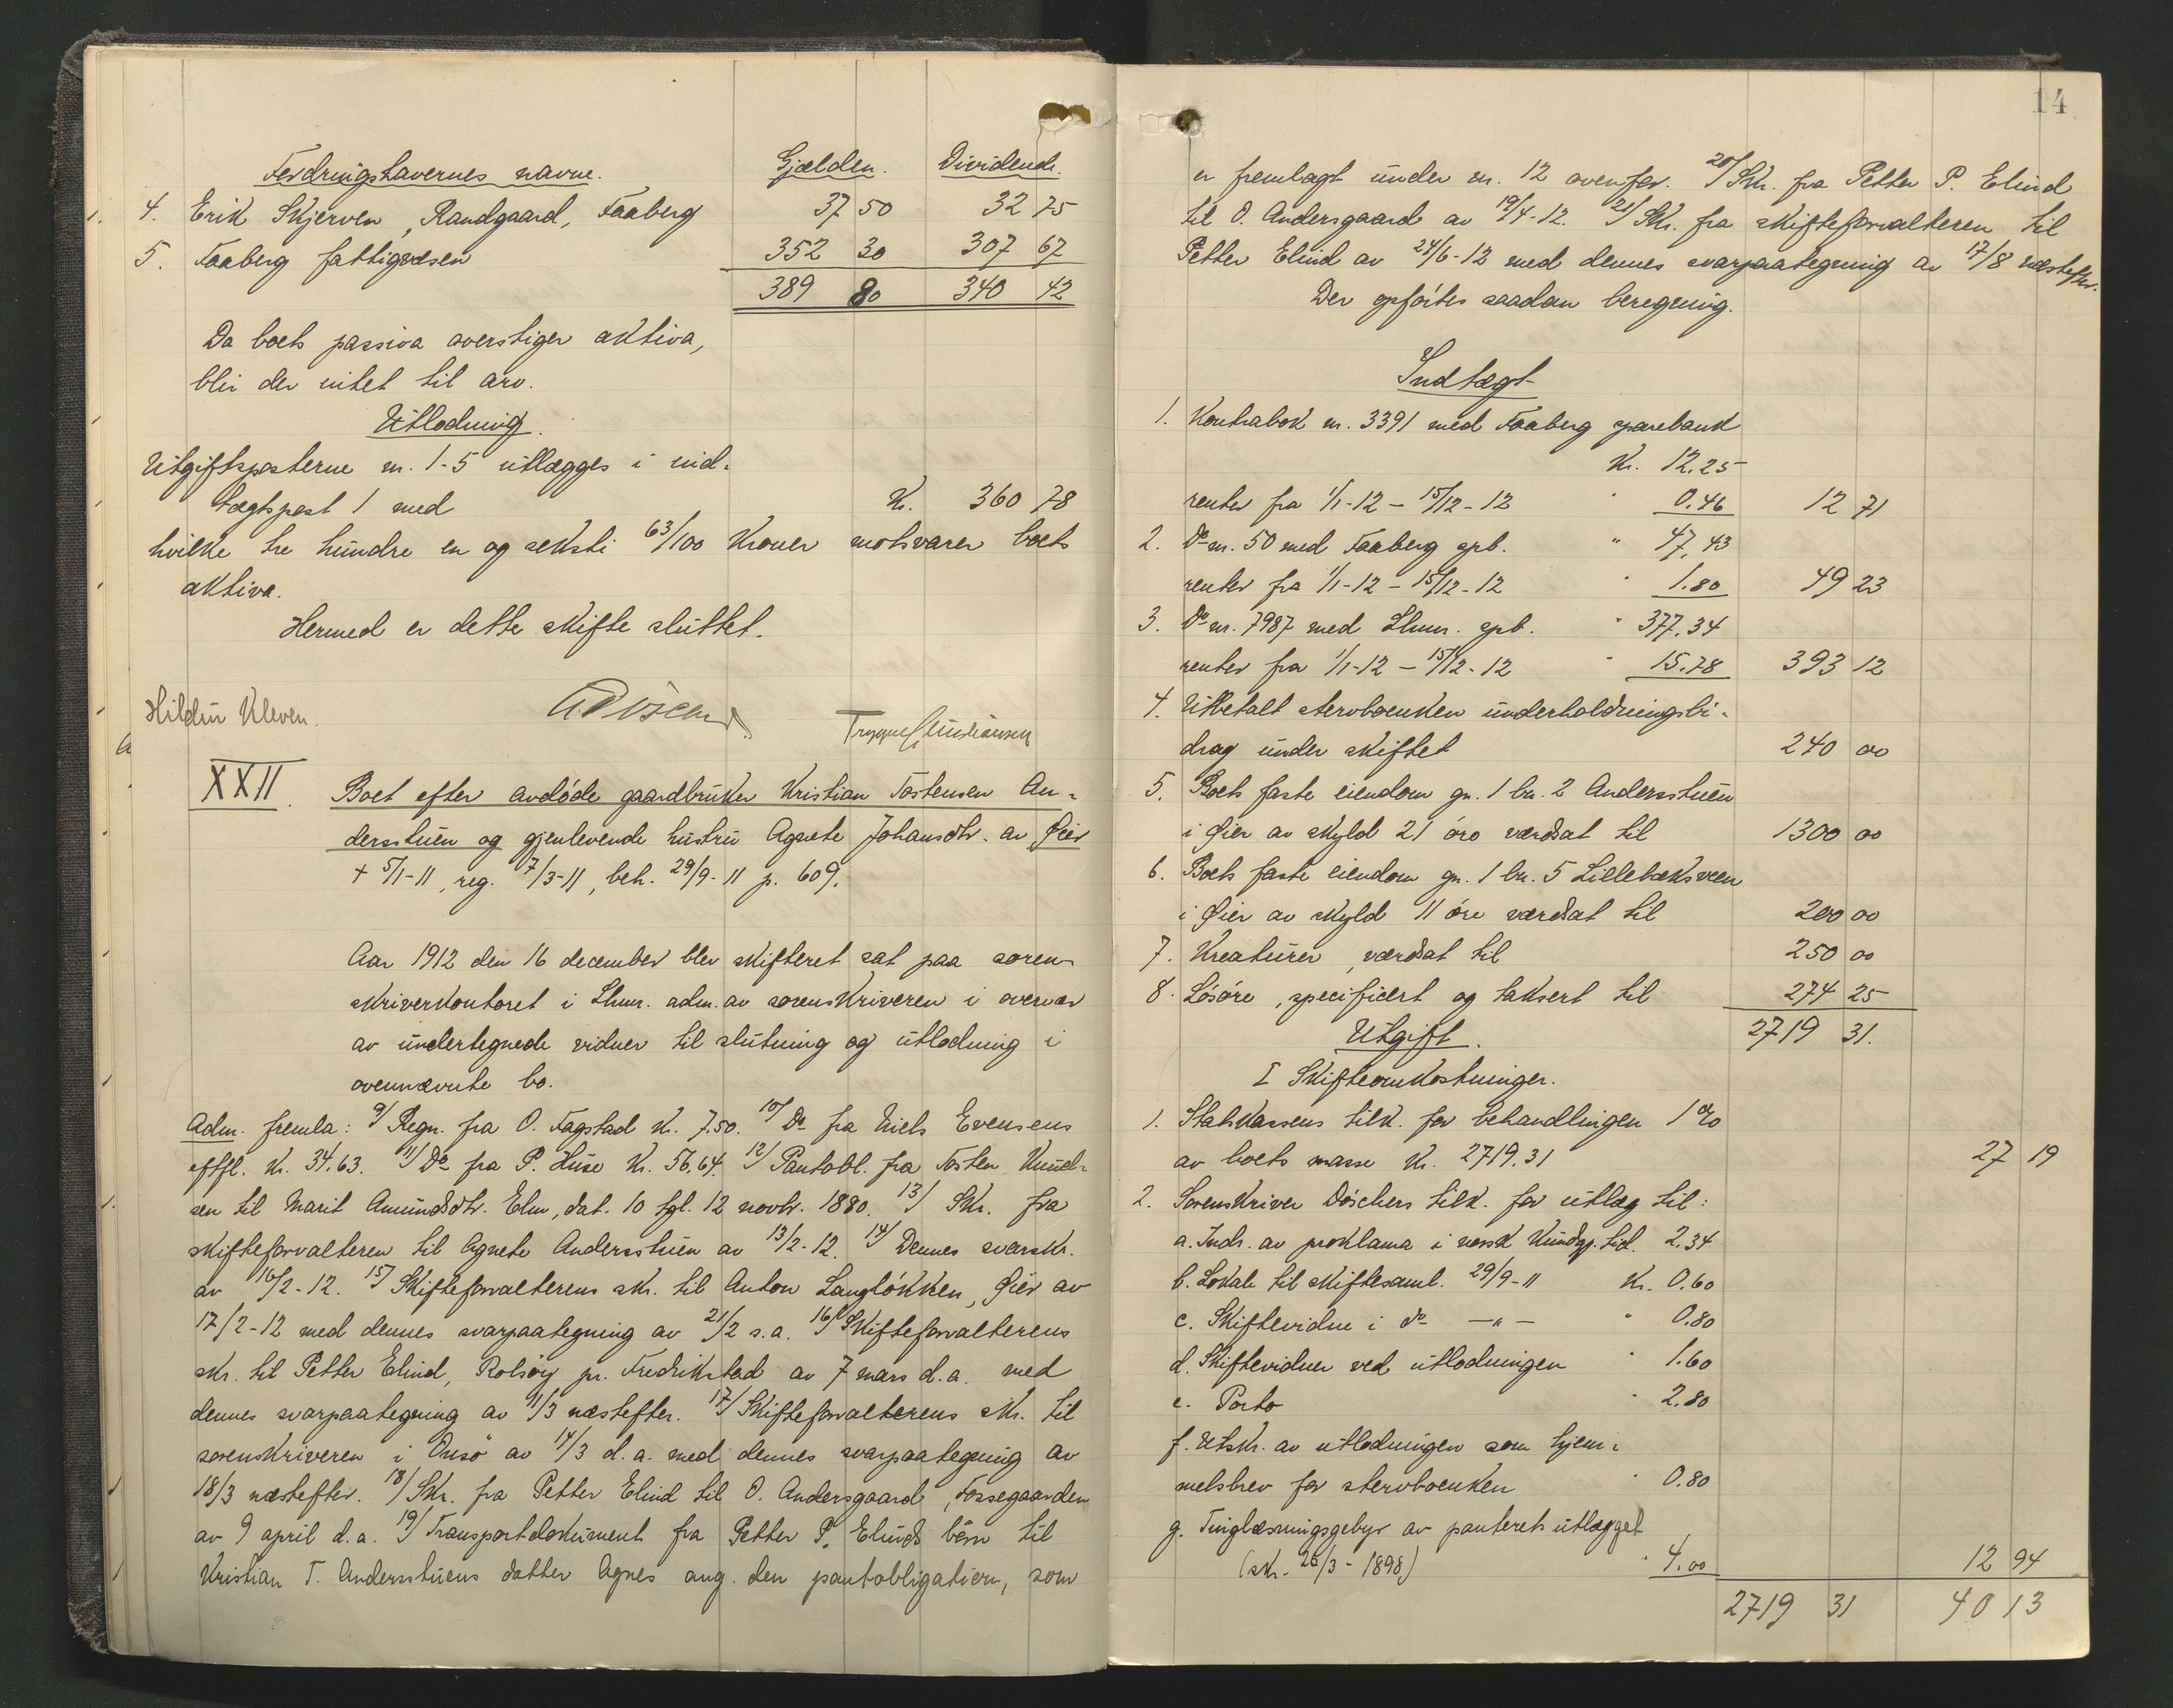 Fordringshavernes navne. Gjælden. Dividende.
1. 4. Erik Skjerven, Randgaard, Faaberg 37 50 32 75
5. Faaberg fattigvæsen 352 30 307 67
389 80 340 42
Da boets passiva overstiger aktiva,
blir der intet til arv.
Utlodning.
Utgiftsposterne nr. 1-5 utlægges i ind-
tægtspost 1 med Kr. 360 78
hvilke tre hundre en og seksti 63/100 Kroner motsvarer boets
aktiva.
Hermed er dette skifte sluttet.
Hildur Kleven.
Trygve Christiansen
XXII. Boet efter avdøde gaardbruker Kristian Tostensen An-
dersstuen og gjenlevende hustru Agnete Johansdtr. av Øier
+ 5/1-11, reg. 7/3-11, beh. 29/9-11 p. 609.
Aar 1912 den 16 december blev skifteret sat paa soren-
skriverkontoret i Lhmr. adm. av sorenskriveren i overvær
av undertegnede vidner til slutning og utlodning i
ovennævnte bo.
Adm. fremla: 9/ Regn. fra O. Fagstad Kr. 7.50. 10/ Do fra Niels Evensens
eftfl. Kr. 34.63. 11/ Do fra P. Huse Kr. 56.64. 12/ Pantobl. fra Tosten Knud-
sen til Marit Amundsdtr. Elm, dat. 10 tgl. 12 novbr. 1880. 13/ Skr. fra
skifteforvalteren til Agnete Andersstuen av 13/2-12. 14/ Dennes svarskr.
av 16/2-12. 15/ Skifteforvalterens skr. til Anton Langløkken, Øier av
17/2-12 med dennes svarpaategning av 21/2 s.a. 16/ Skifteforvalterens
skr. til Petter Elind, Rolsøy pr. Fredrikstad av 7 mars d.a. med
dennes svarpaategning av 11/3 næstefter. 17/ Skifteforvalterens skr. til
sorenskriveren i Onsø av 14/3 d.a. med dennes svarpaategning av
18/3 næstefter. 18/ Skr. fra Petter Elind til O. Andersgaard, Fossegaarden
av 9 april d.a. 19/ Transportdokument fra Petter P. Elinds børn til
Kristian T. Andersstuens datter Agnes ang. den pantobligation, som
14
er fremlagt under nr. 12 ovenfor. 20/ Skr. fra Petter P. Elind
til O. Andersgaard av 19/4-12. 21/ Skr. fra skifteforvalteren til
Petter Elind av 24/6-12 med dennes svarpaategning av 17/8 næstefter.
Der opførtes saadan beregning.
Indtægt
1. Kontrabok nr. 3391 med Faaberg sparebank
Kr. 12.25
renter fra 1/1-12 - 15/12-12 " 0.46 12 71
2. Do nr. 50 med Faaberg spb. " 47.43
renter fra 1/1-12 - 15/12-12 " 1.80 49 23
3. Do nr. 7987 med Lhmr. spb. " 377.34
renter fra 1/1-12 - 15/12-12 " 15.78 393 12
4. Utbetalt stervboenken underholdningsbi-
drag under skiftet 240 00
5. Boets faste eiendom gn. 1 bn. 2 Andersstuen
i Øier av skyld 21 øre værdsat til 1300 00
6. Boets faste eiendom gn. 1 bn. 5 Lillebæksveen
i Øier av skyld 11 øre værdsat til 200 00
7. Kreaturer, værdsat til 250 00
8. Løsøre, specificert og taksert til 274 25
Utgift. 2719 31.
I Skifteomkostninger.
1. Statskassens tilk. for behandlingen 1 %
av boets masse Kr. 2719.31 27 19
2. Sorenskriver Döschers tilk. for utlæg til:
a. Indr. av proklama i norsk Kundgj. tid. 2.34
b. Lokale til skiftesaml. 29/9-11 Kr. 0.60
c. Skiftevidne i do -"- " 0.80
d. Skiftevidner ved utlodningen " 1.60
e. Porto " 2.80
f. Utskr. av utlodningen som hjem-
melsbrev for stervboenken " 0.80
g. Tinglæsningsgebyr av panterets utlægget
(skr. 26/3-1898) " 4.00 12 94
2719 31 40 13